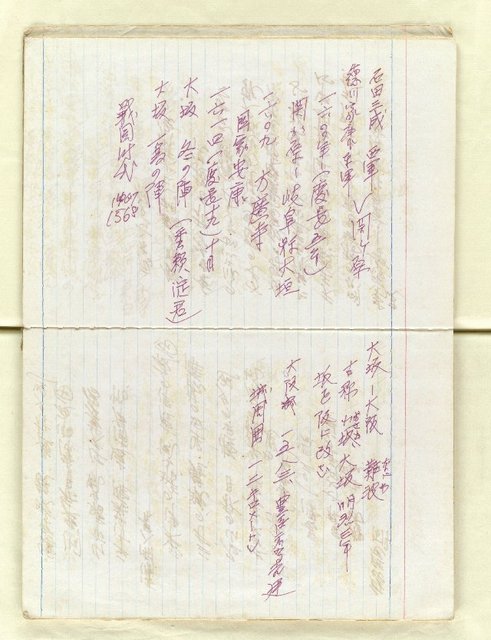 石田三成 西軍
徳川家康東軍 〉関ケ原
一六〇〇年(慶長五年)
関が原ー岐阜県大垣
一六〇九 方廣寺
国家安康
一六一四(慶長十九)十月
大坂 冬の陣(秀頼 淀君)
大坂 夏の陣
戦国時代 1467 1568
大坂ー大阪 難波
古称 小坂 大坂 明治三年
坂を阪に改む
大阪城 一五八三 豊臣秀吉建
城周囲